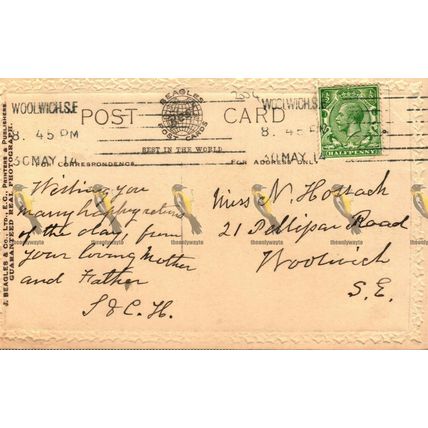 204
WOOLWICH.S.E
8. 45 PM
30 MAY. 14
POST CARD
BEAGLES'
POST CARDS
BEST IN THE WORLD
WOOLWICH.S.E
8. 45 PM
30 MAY. 14
HALFPENNY
FOR CORRESPONDENCE.
FOR ADDRESS ONLY.
J. BEAGLES & CO., LTD., E.C. PRINTERS & PUBLISHERS.
GUARANTEED REAL PHOTOGRAPH.
Wishing you
many happy returns
of the day from
your loving Mother
and Father
S & C. H.
Miss N. Hossack
21 Pellipar Road
Woolwich
S.E.
theonlywayto
theonlywayto
theonlywayto
theonlywayto
theonlywayto